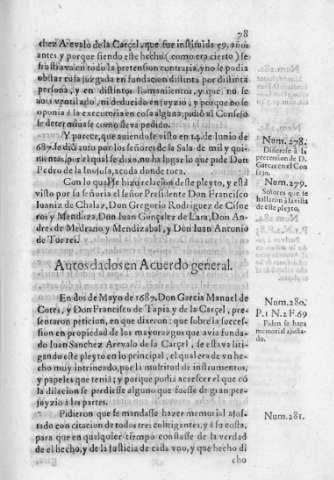 78
chez Arevalo de la Carçel, que fue instituida 59. años
antes y porque siendo este hecho (como era cierto) se
frustrava en todo la pretension contraria, y no se podia
obstar cosa juzgada en fundacion distinta por distinta
persona, y en distintos llamamientos, y que no se
avia ventilado, ni deducido en juyzio, y porque no se
oponia a la executoria en cosa alguna; pidiò al Consejo
le determinasse como lleva pedido.
Y parece, que aviendose visto en 14. de Iunio de
687. se diò auto por los señores de la Sala de mil y qui-
nientas, por el qual se dixo, no ha lugar lo que pide Don
Pedro de la Inojosa, acuda donde toca.
Con lo qual se haze relacion de este pleyto, y està
visto por la señoria el señor Presidente Don Francisco
Ioaniz de Chalaz, Don Gregorio Rodriguez de Cisne
ros y Mendieta, Don Iuan Gonçalez de Lara, Don An-
dres de Medrano y Mendizabal, y Don Iuan Antonio
de Torres.
Autos dados en Acuerdo general.
En dos de Mayo de 1687. Don Garcia Manuel de
Cotes, y Don Francisco de Tapia y de la Carçel, pre-
sentaron peticion, en que dizeron: que sobre la succes-
sion en propiedad de los mayorazgos que avia funda-
do Iuan Sanchez Arevalo de la Carçel, se estava litigan-
do este pleyto en lo principal, el qual era de vn he-
cho muy intrincado, por la multitud de instrumentos,
y papeles que tenia; y porque podria acontecer que cō
la dilacion se perdiesse alguno que fuesse de gran per-
juyzio a las partes.
Pidieron que se mandasse hazer memorial ajus-
tado con citacion de todos tres colitigantes, y à su costa,
para que en qualquier tiempo constasse de la verdad
de el hecho, y de la Iusticia de cada vno, y que hecho di
cho
Num. 278.
pretension de D.
Num. 279.
Señores que se
hallaron à la vista
de este pleyto,
Num. 280.
P. 1 N. 2 F. 69
Piden se haga
memorial ajusta-
do.
Num. 281.